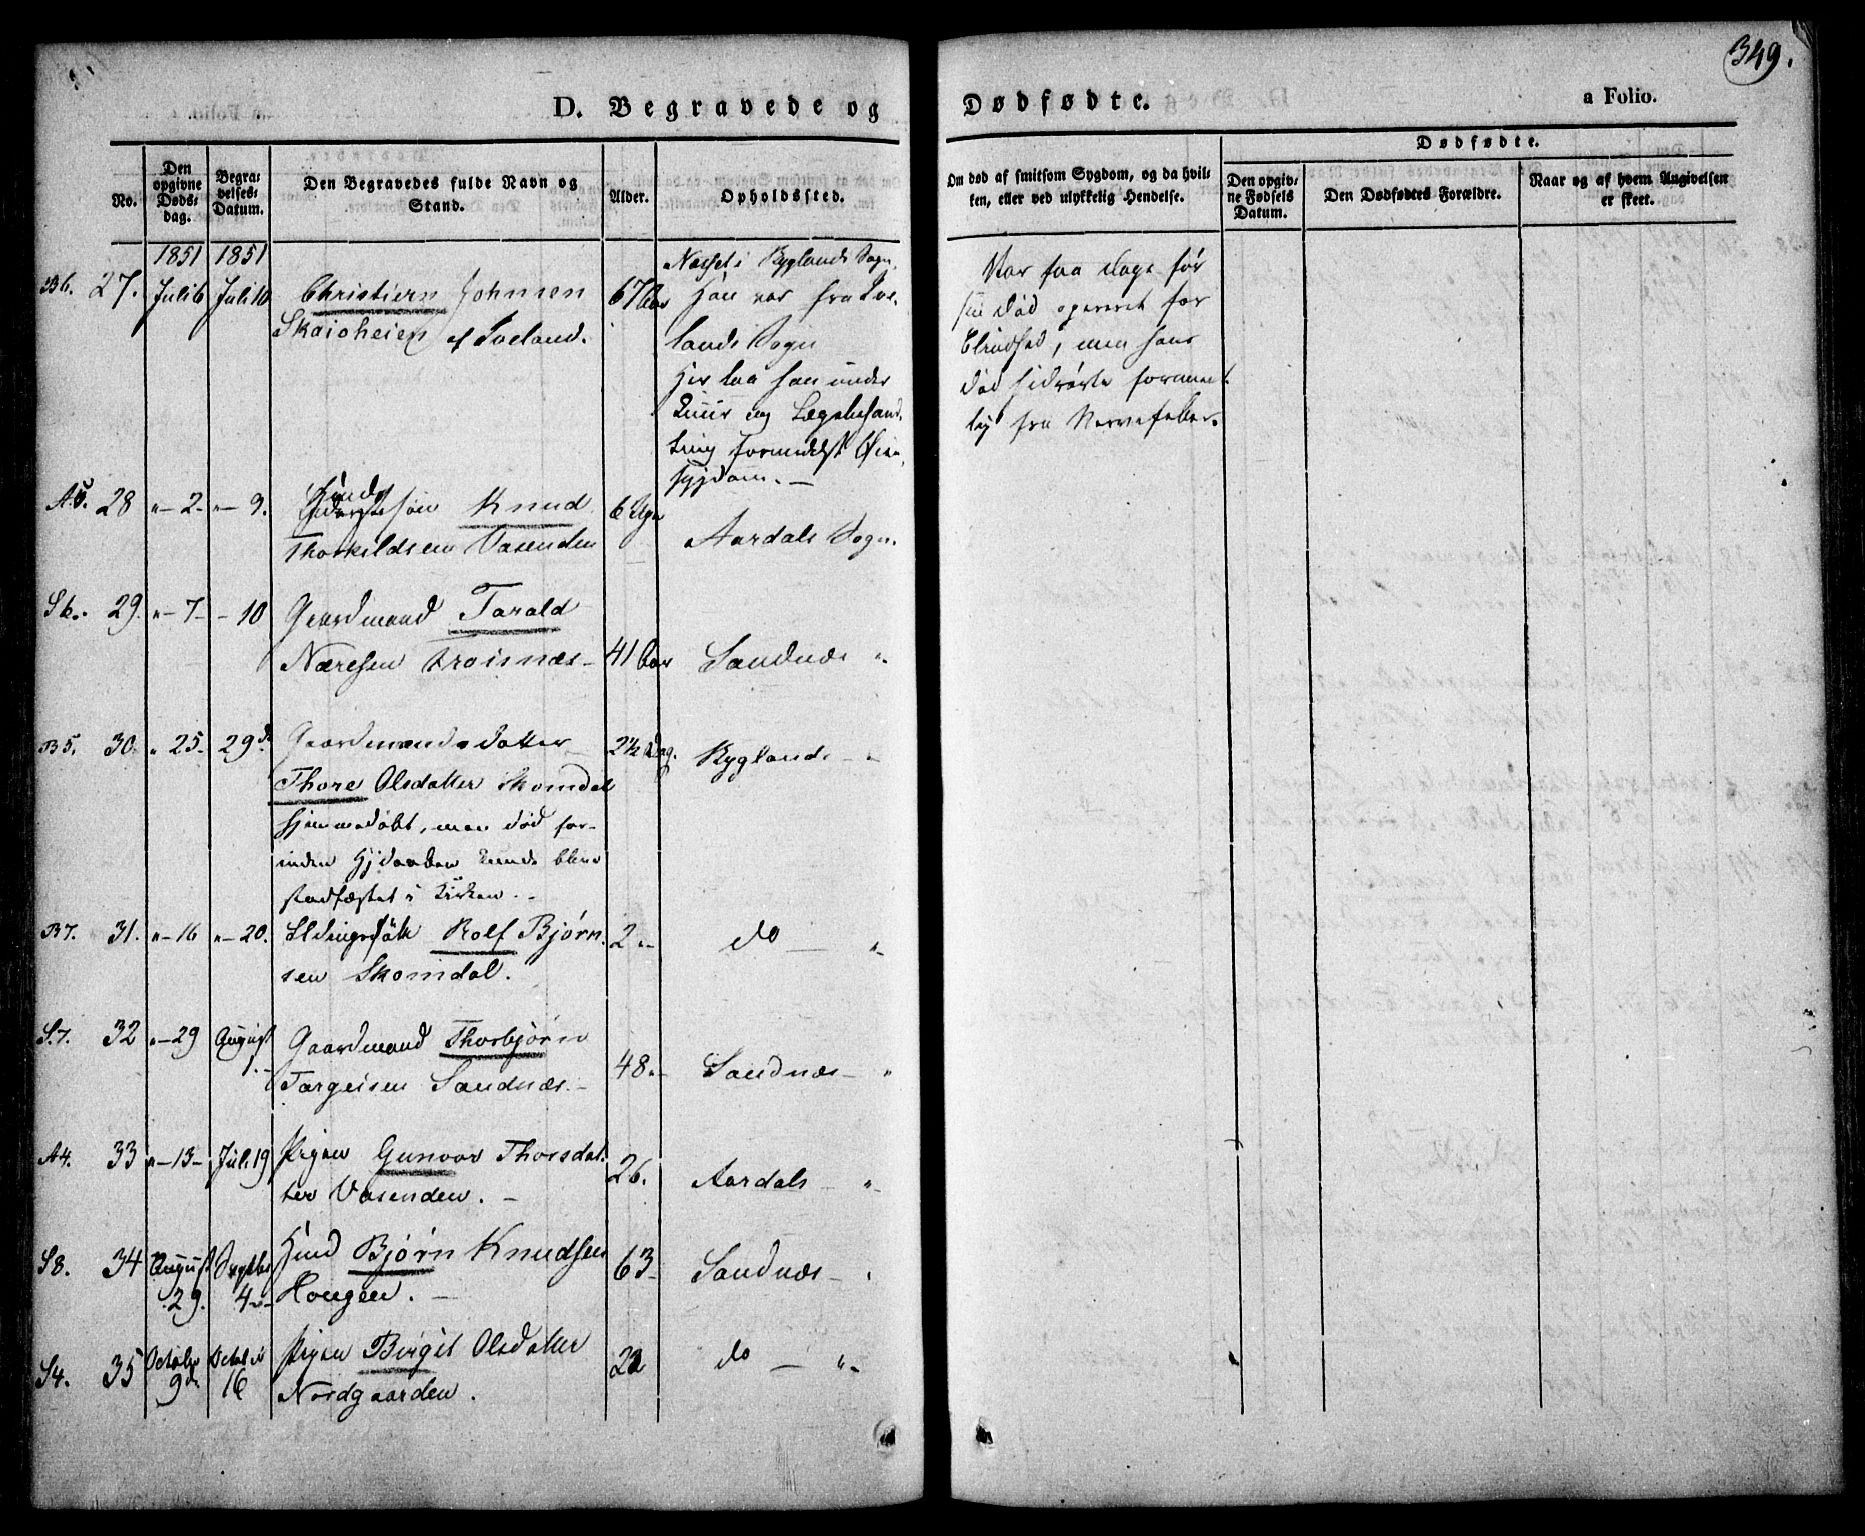 349.
D. Begravede og Dødfødte.
a Folio.
No.
Den opgivne Dødsdag.
Begravelses-Datum.
Den Begravedes fulde Navn og Stand.
Alder.
Opholdssted.
Om død af smitsom Sygdom, og da hvilken, eller ved ulykkelig Hendelse.
Dødfødte.
Den opgivne Fødsels Datum.
Den Dødfødtes Forældre.
Naar og af hvem Angivelsen er skeet.
1851 1851
B6. 27. Juli 6 Juli 10 Christiern Johnsen 67 Aar
Skaioheien af Iveland.
i Byglands Sogn.
Han var fra Ive-
lands Sogn
Her laa han under
Kuur og Lægebehand-
ling formedelst Øien-
sygdom. -
Var faa Dage før
sin Død opereret for
Blindhed, men hans
Død hidrørte formeent-
lig fra Nervefeber.
28 " - 2 - " - 9. søn Knud 6 Uger
Thorkildsen Vasenden
Aardals Sogn.
S6. 29. " - 7 - - 10 Gaardmand Tarald
Næresen Froisnæs - 41 Aar Sandnæs "
B5. 30. " 25 - 29d. Gaardmands datter 2½ Dag. Byglands - "
Thore Olsdatter Skomdal
hjemmedøbt, men død for-
inden Hj.daaben kunde blive
stadfæstet i Kirken. -
B7. 31. " - 16 " - 20. Rolf Bjørn- 2 " do - "
sen Skomdal.
S7. 32 " - 29 August 1. - Gaardmand Thorbjørn
Targeisen Sandnæs. - 48 " Sandnæs - "
A4. 33 " - 13 - Juli 19 Pigen Gunvor Thorsdat-
ter Vasenden. - 26. Aardals - "
S8. 34 August 29. Septbr 4 - Bjørn Knudsen
Hougen. - 63 - Sandnæs - "
S4. 35 October 9d. October 16 Pigen Birgit Olsdatter
Nordgaarden. 22 do - "